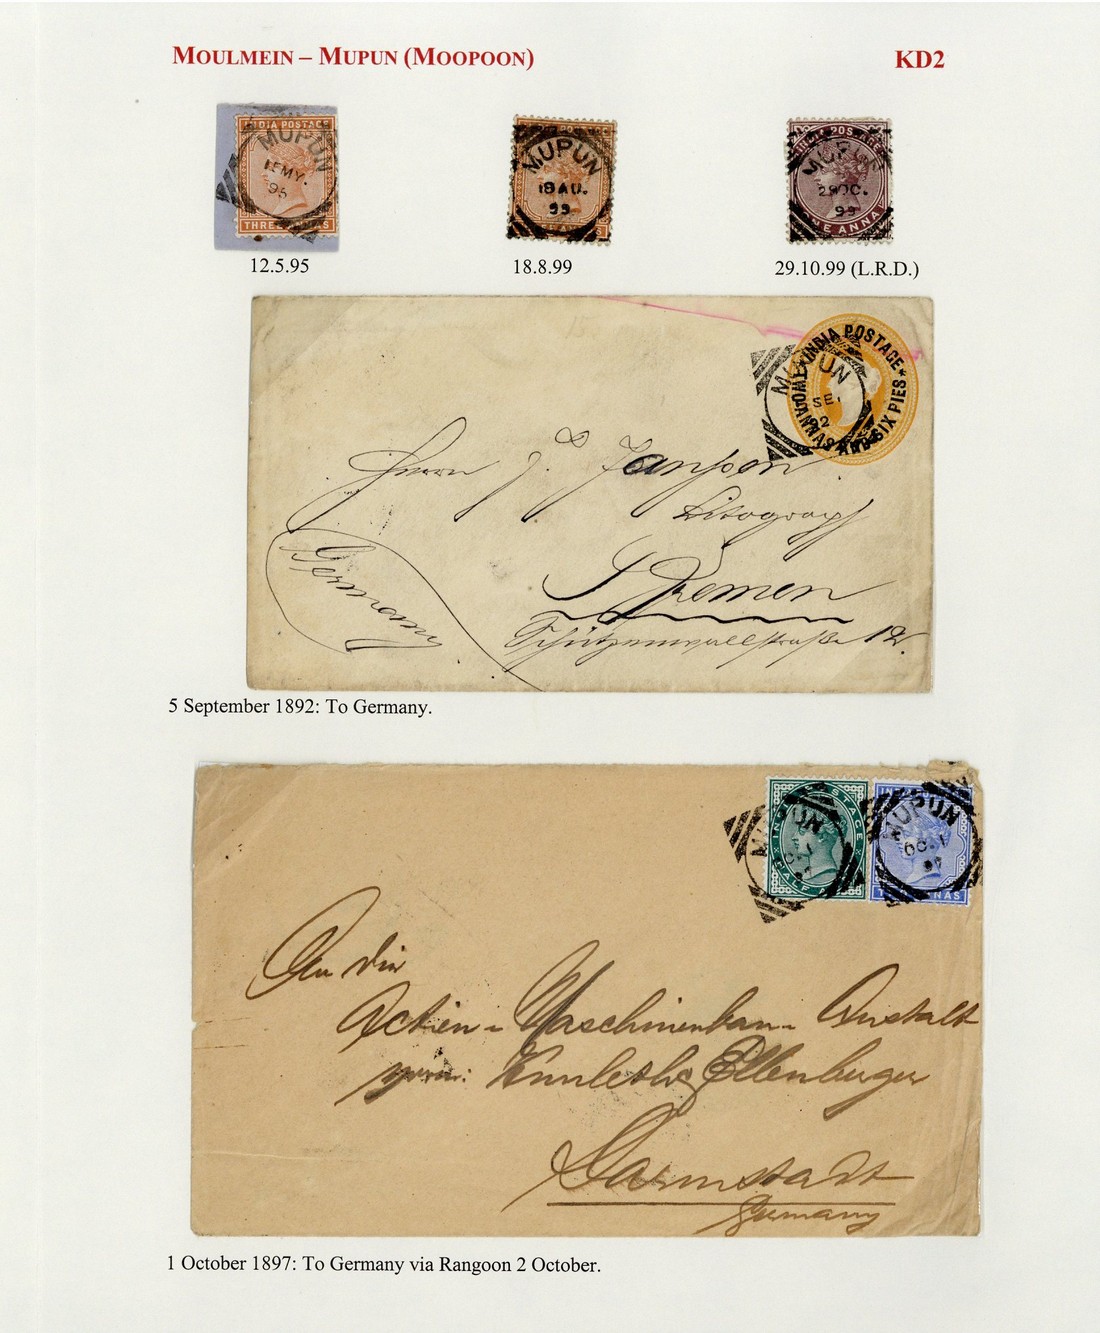 MOULMEIN – MUPUN (MOOPOON)
KD2
INDIA POSTAGE
MUPUN
MY.
95
THREE ANNAS
MUPUN
18 AU.
99
INDIA POSTAGE
MUPUN
29 OC.
99
ONE ANNA
12.5.95
18.8.99
29.10.99 (L.R.D.)
INDIA POSTAGE
TWO ANNAS AND SIX PIES
MUPUN
SE.
92
Herrn J. Janssen
Litograph
Bremen
Schützenwallstraße 12.
Germany
5 September 1892: To Germany.
HALF
MUPUN
MUPUN
OC. 1
97
An die
Actien-Maschinenbau-Anstalt
vorm: Ellenberger
Darmstadt
Germany
1 October 1897: To Germany via Rangoon 2 October.